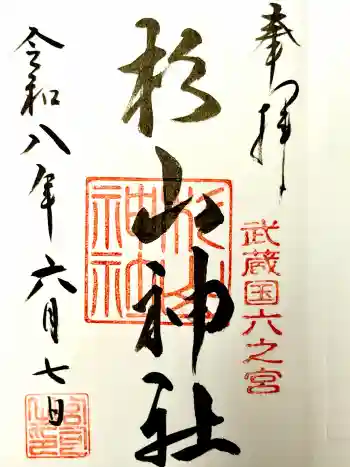 奉拝
武蔵国六之宮
杉山神社
杉山神社
令和八年六月七日